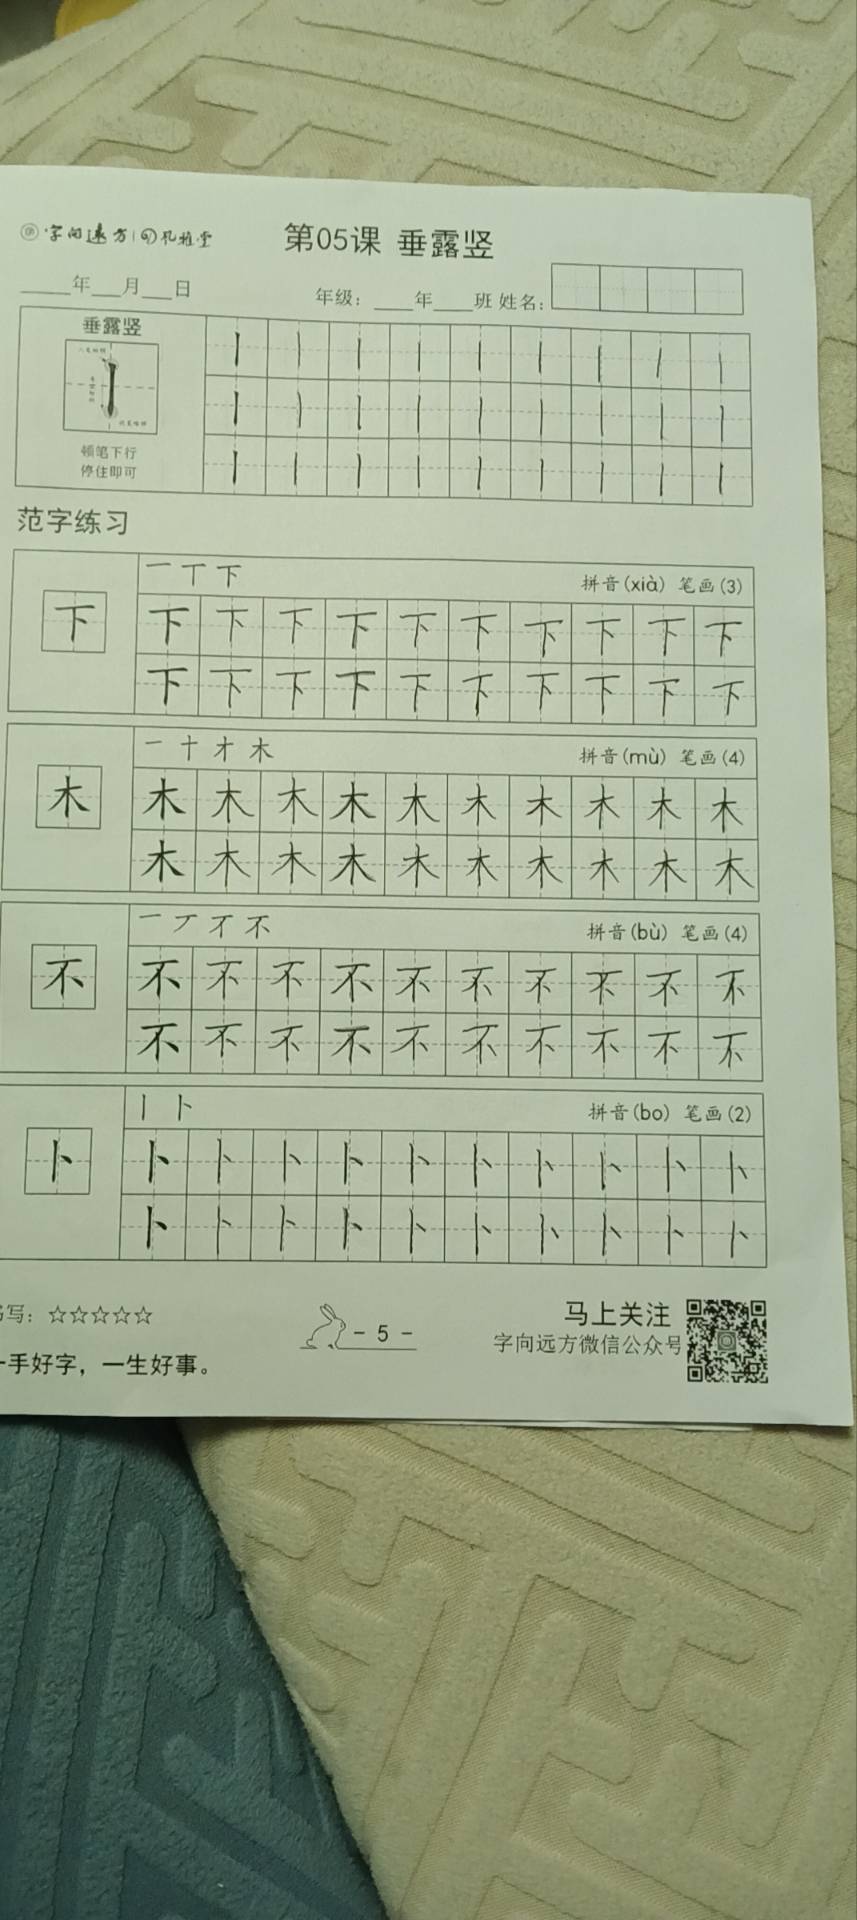 字向远方 孔雅堂
第05课 垂露竖
年 月 日
年级： 年 班 姓名：
垂露竖
顿笔下行
停住即可
范字练习
一丅下
拼音(xià) 笔画(3)
下 下 下 下 下 下 下 下 下 下 下
下 下 下 下 下 下 下 下 下 下
一 十 才 木
拼音(mù) 笔画(4)
木 木 木 木 木 木 木 木 木 木 木
木 木 木 木 木 木 木 木 木 木
一 丆 不 不
拼音(bù) 笔画(4)
不 不 不 不 不 不 不 不 不 不 不
不 不 不 不 不 不 不 不 不 不
丨 卜
拼音(bo) 笔画(2)
卜 卜 卜 卜 卜 卜 卜 卜 卜 卜 卜
卜 卜 卜 卜 卜 卜 卜 卜 卜 卜
写：☆☆☆☆☆
- 5 -
马上关注
字向远方微信公众号
一手好字，一生好事。